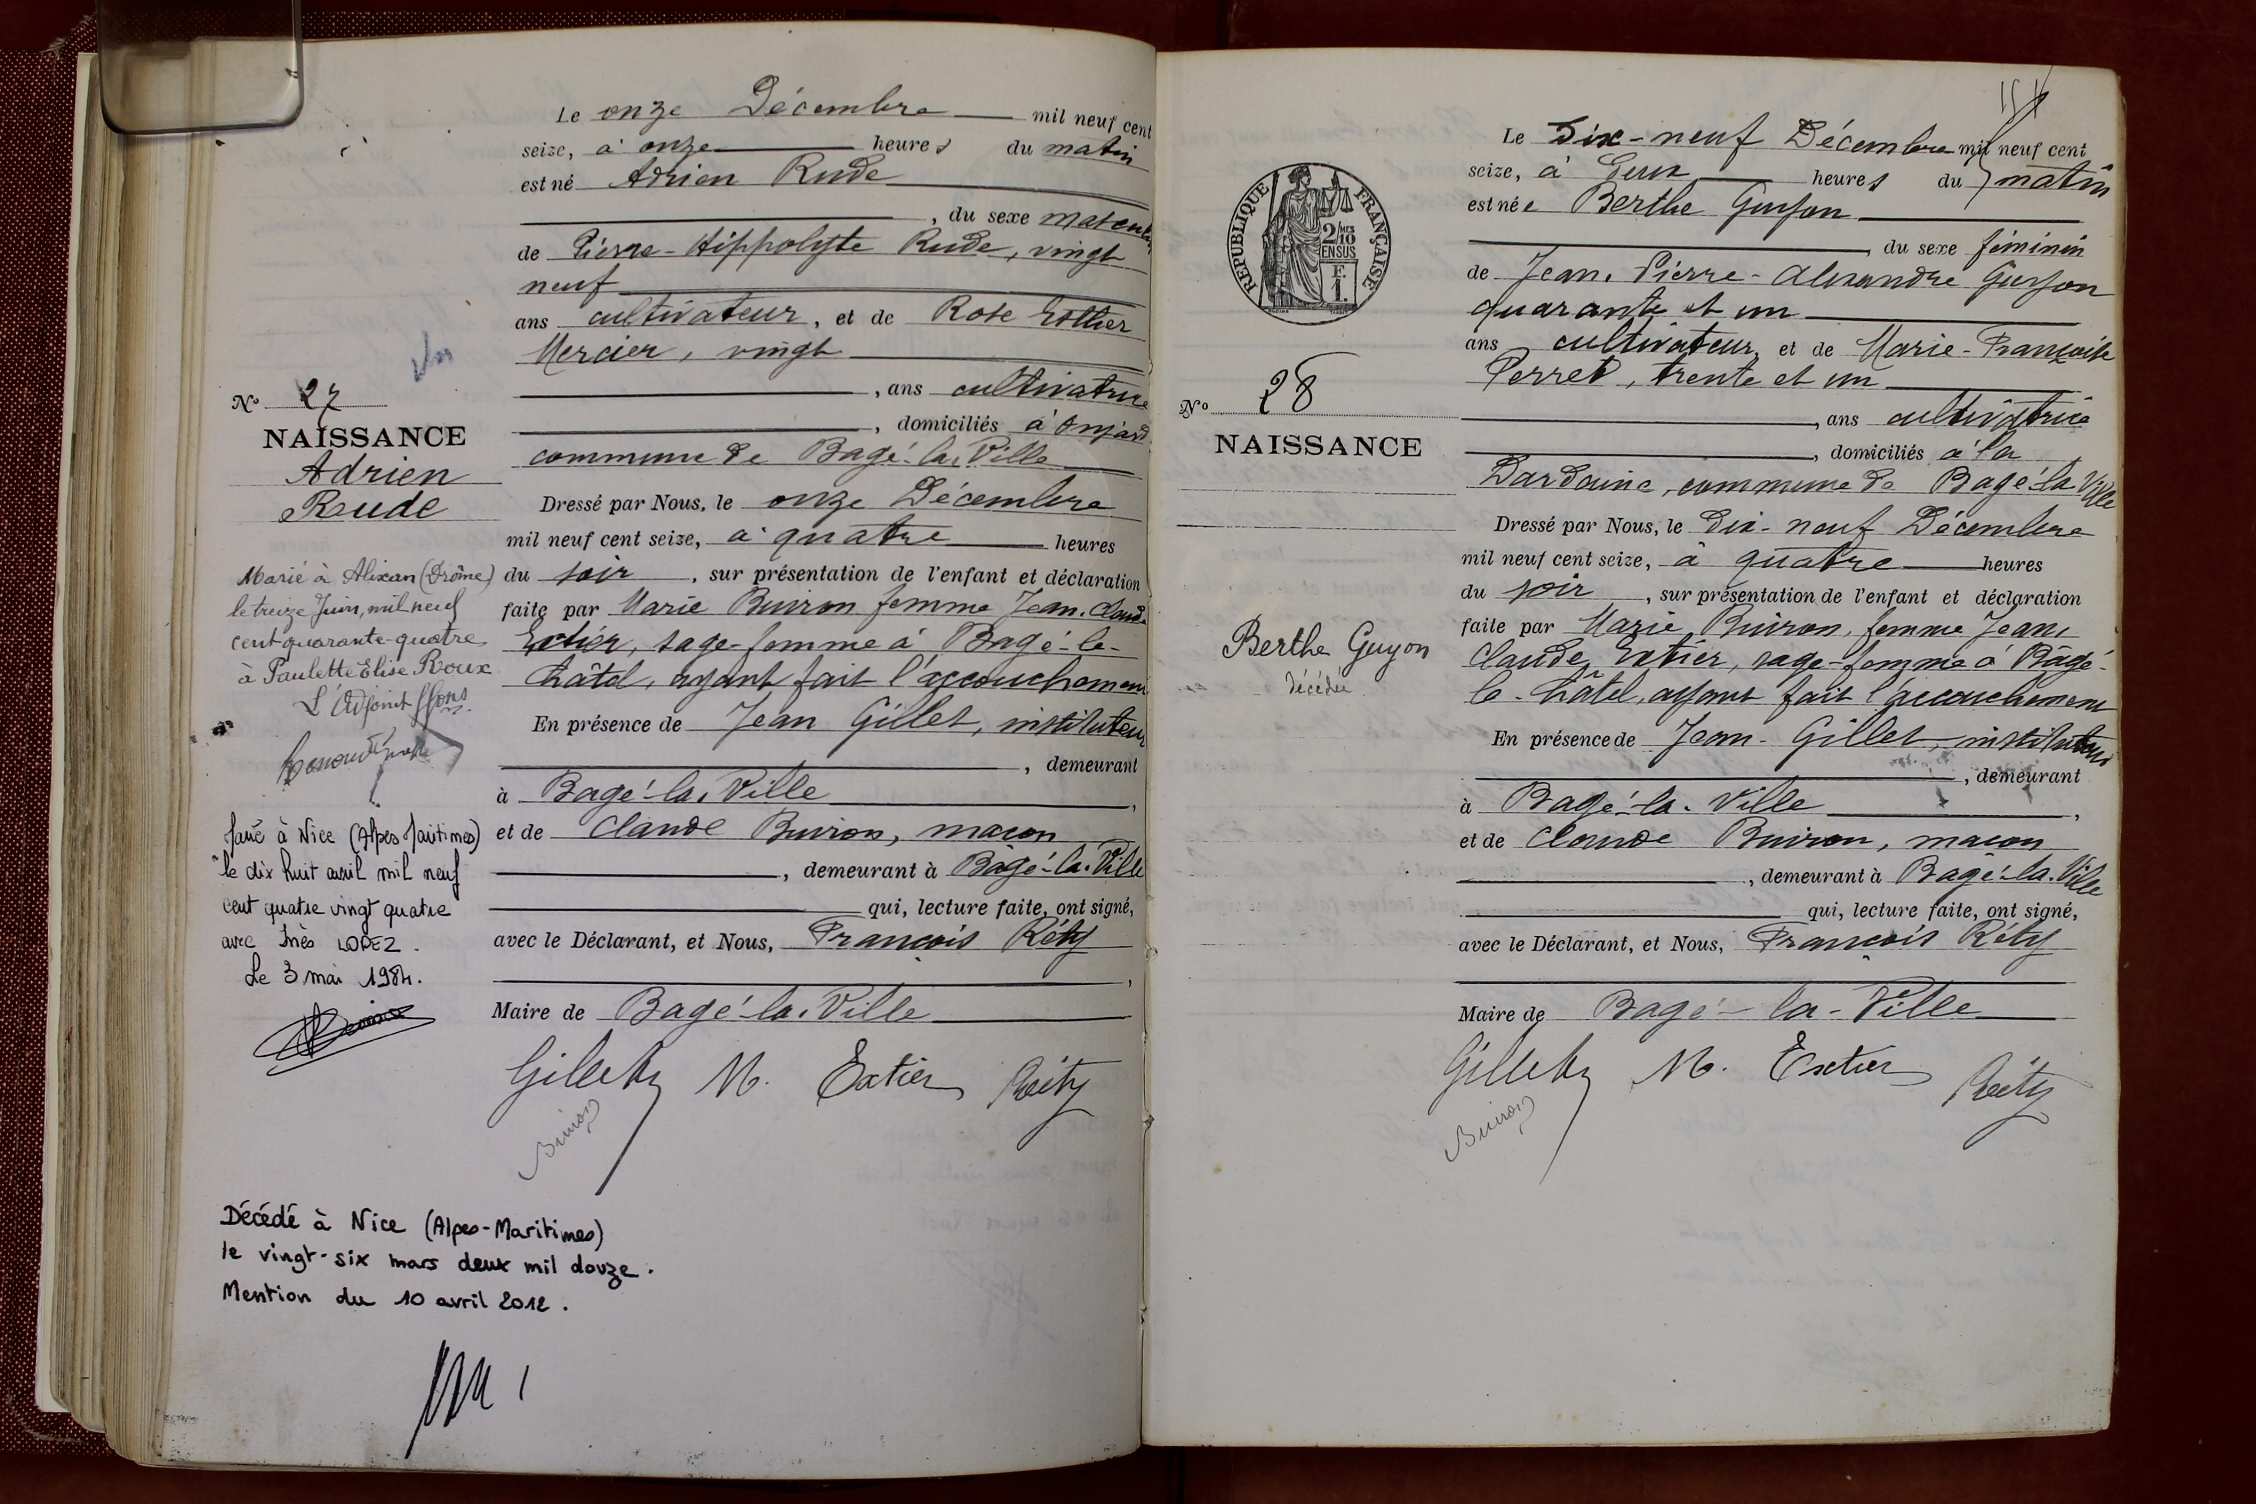 Le onze Décembre mil neuf cent
seize, à onze heures du matin
est né Adrien Rude
, du sexe masculin
de Pierre-Hippolyte Rude, vingt
neuf
ans cultivateur, et de Rose Esther
Mercier, vingt
, ans cultivatrice
, domiciliés à
commune de Bagé-la-Ville
Dressé par Nous, le onze Décembre
mil neuf cent seize, à quatre heures
du soir, sur présentation de l'enfant et déclaration
faite par Marie Buiron femme Jean-Claude
Extier, sage-femme à Bagé-le-
Châtel, ayant fait l'accouchement
En présence de Jean Gillet, instituteur
, demeurant
à Bagé-la-Ville,
et de Claude Buiron, maçon
, demeurant à Bagé-la-Ville
qui, lecture faite, ont signé,
avec le Déclarant, et Nous, François Réty
,
Maire de Bagé-la-Ville
Gillet M. Extier Réty
Buiron
No 27
NAISSANCE
Adrien
Rude
Marié à Alixan (Drôme)
le treize Juin, mil neuf
cent quarante-quatre
à Paulette Elise Roux
L'Adjoint
Marié à Nice (Alpes Maritimes)
le dix huit avril mil neuf
cent quatre vingt quatre
avec Inès LOPEZ.
Le 3 mai 1984.
Décédé à Nice (Alpes-Maritimes)
le vingt-six mars deux mil douze.
Mention du 10 avril 2012.
Le Dix-neuf Décembre mil neuf cent
seize, à Deux heures du matin
est née Berthe Guyon
, du sexe féminin
de Jean-Pierre-Alexandre Guyon
quarante et un
ans cultivateur, et de Marie-Françoise
Perret, trente et un
, ans cultivatrice
, domiciliés à la
Dardaine, commune de Bagé-la-Ville
Dressé par Nous, le Dix-neuf Décembre
mil neuf cent seize, à quatre heures
du soir, sur présentation de l'enfant et déclaration
faite par Marie Buiron, femme Jean-
Claude Extier, sage-femme à Bâgé-
le-Châtel, ayant fait l'accouchement
En présence de Jean-Gillet, instituteur
, demeurant
à Bagé-la-Ville,
et de Claude Buiron, maçon
, demeurant à Bagé-la-Ville
qui, lecture faite, ont signé,
avec le Déclarant, et Nous, François Réty
Maire de Bagé-la-Ville
Gillet M. Extier Réty
Buiron
REPUBLIQUE FRANÇAISE
2/10 MES
EN SUS
F.
1.
No 28
NAISSANCE
Berthe Guyon
décédée